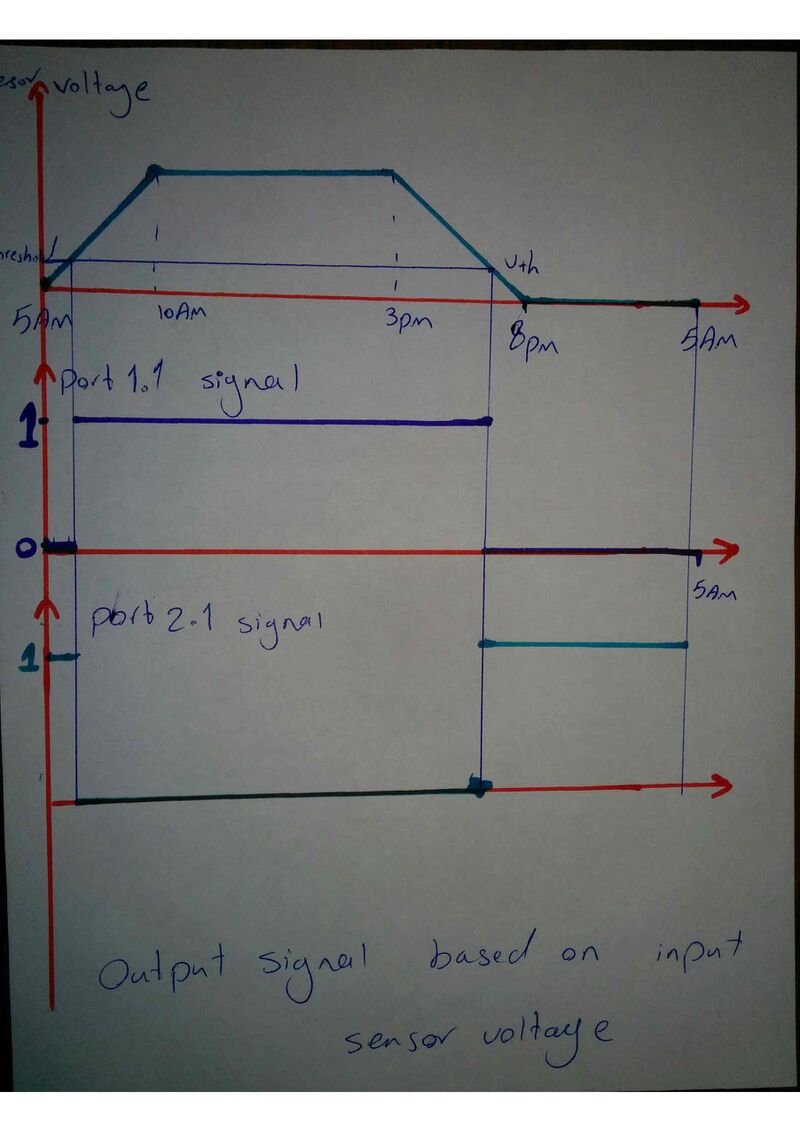 voltage
Vth
5AM 10AM 3pm 8pm 5AM
port 1.1 signal
1
0
5AM
port 2.1 signal
1
Output signal based on input
sensor voltage